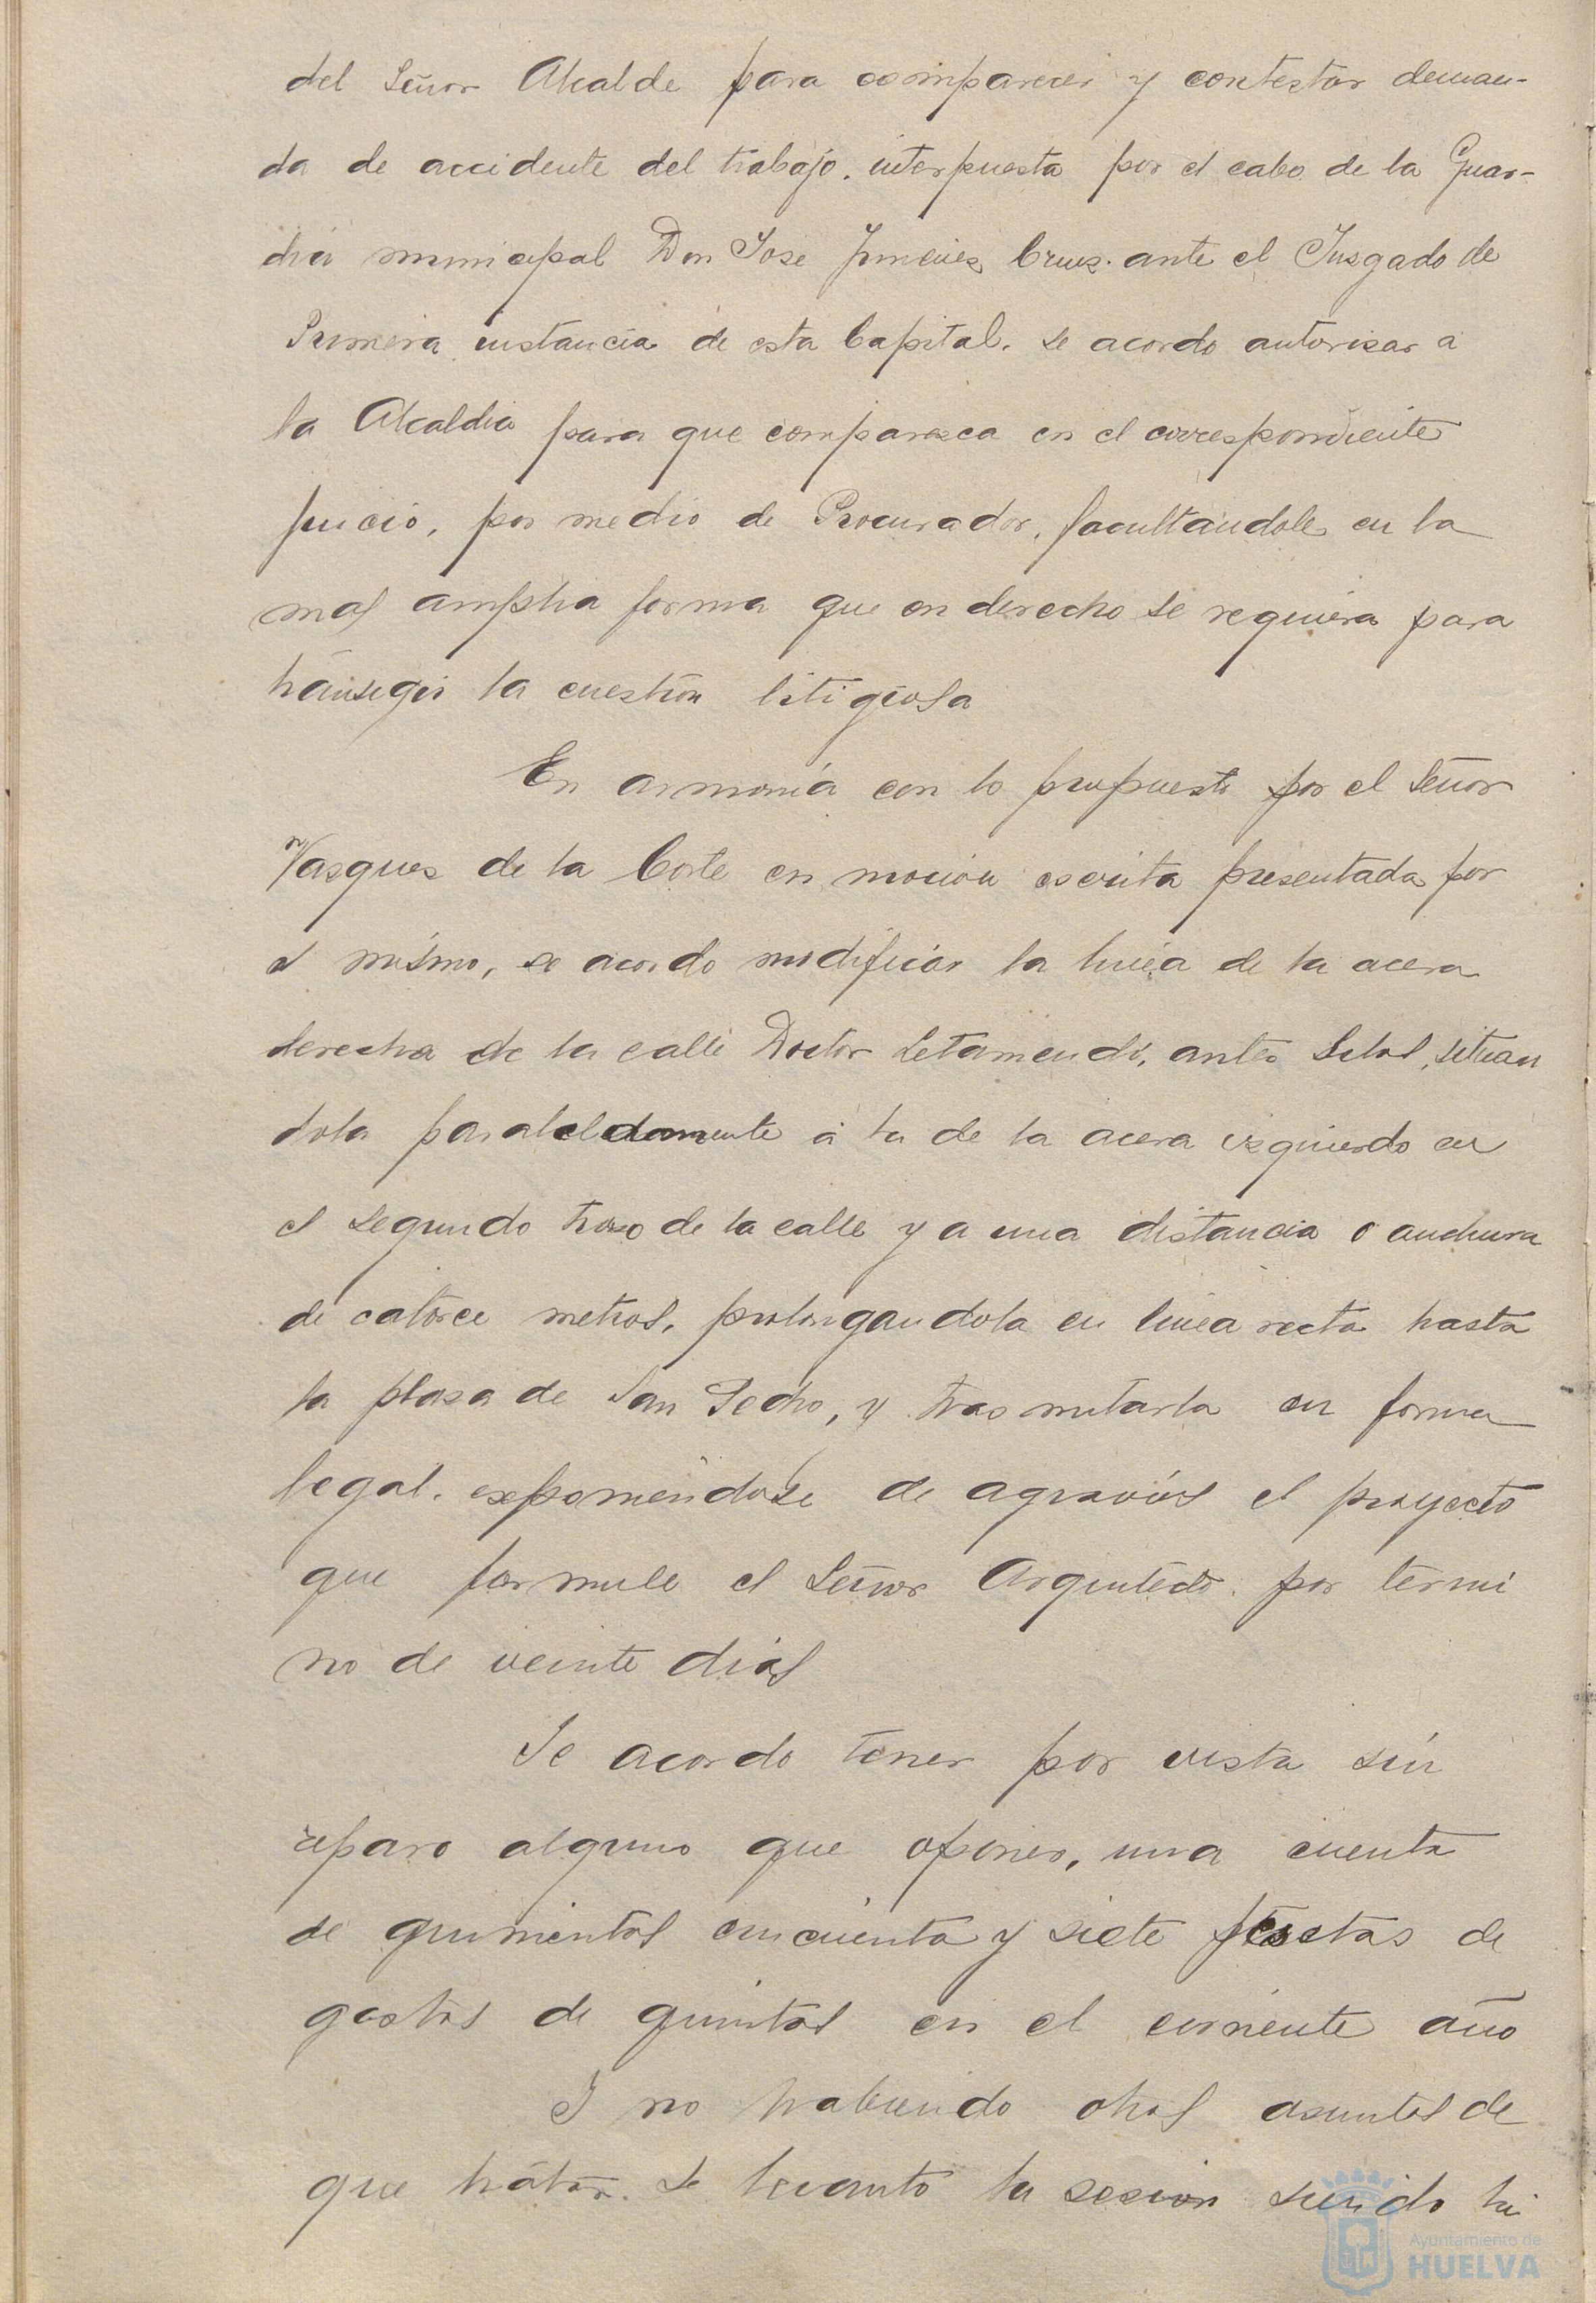 del Señor Alcalde para comparecer y contestar deman-
da de accidente del trabajo. interpuesta por el cabo de la Guar-
dia municipal Don Jose Jimenez Cruz. ante el Jusgado de
Primera instancia de esta Capital. se acordo autorisar a
la Alcaldia para que comparesca en el correspondiente
juicio, por medio de Procurador, facultandole en la
mas amplia forma que en derecho se requiera para
transigir la cuestion litigiosa
En armonia con lo propuesto por el Señor
Vasques de la Corte en mocion escrita presentada por
el mismo, se acordo modificar la linea de la acera
derecha de la calle Doctor Letamendi, antes Silos, situan
dola paralelamente a la de la acera izquierdo en
el segundo troso de la calle y a una distancia o anchura
de catorce metros, prolongandola en linea recta hasta
la plasa de San Pedro, y trasmitarla en forma
legal. exponiendose de agravios el proyecto
que formule el Señor Arquitecto por termi
no de veinte dias
Se acordo tener por vista sin
reparo alguno que oponer, una cuenta
de quinientas cincuenta y siete pesetas de
gastos de quintas en el corriente año
I no habiendo otros asuntos de
que tratar. se levanto la sesion siendo la
Ayuntamiento de
HUELVA